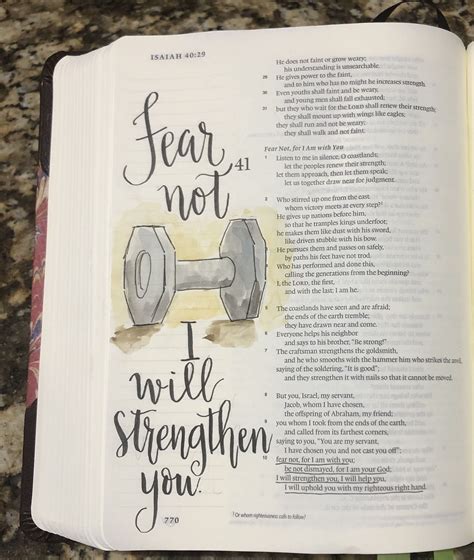 ISAIAH 40:29
Fear
not
I
will
Strengthen
you.
770
He does not faint or grow weary;
his understanding is unsearchable.
29 He gives power to the faint,
and to him who has no might he increases strength.
30 Even youths shall faint and be weary,
and young men shall fall exhausted;
31 but they who wait for the LORD shall renew their strength;
they shall mount up with wings like eagles;
they shall run and not be weary;
they shall walk and not faint.
Fear Not, for I Am with You
41
1 Listen to me in silence, O coastlands;
let the peoples renew their strength;
let them approach, then let them speak;
let us together draw near for judgment.
2 Who stirred up one from the east
whom victory meets at every step?¹
He gives up nations before him,
so that he tramples kings underfoot;
he makes them like dust with his sword,
like driven stubble with his bow.
3 He pursues them and passes on safely,
by paths his feet have not trod.
4 Who has performed and done this,
calling the generations from the beginning?
I, the LORD, the first,
and with the last; I am he.
5 The coastlands have seen and are afraid;
the ends of the earth tremble;
they have drawn near and come.
6 Everyone helps his neighbor
and says to his brother, "Be strong!"
7 The craftsman strengthens the goldsmith,
and he who smooths with the hammer him who strikes the anvil,
saying of the soldering, "It is good";
and they strengthen it with nails so that it cannot be moved.
8 But you, Israel, my servant,
Jacob, whom I have chosen,
the offspring of Abraham, my friend;
9 you whom I took from the ends of the earth,
and called from its farthest corners,
saying to you, "You are my servant,
I have chosen you and not cast you off";
10 fear not, for I am with you;
be not dismayed, for I am your God;
I will strengthen you, I will help you,
I will uphold you with my righteous right hand.
¹ Or whom righteousness calls to follow?